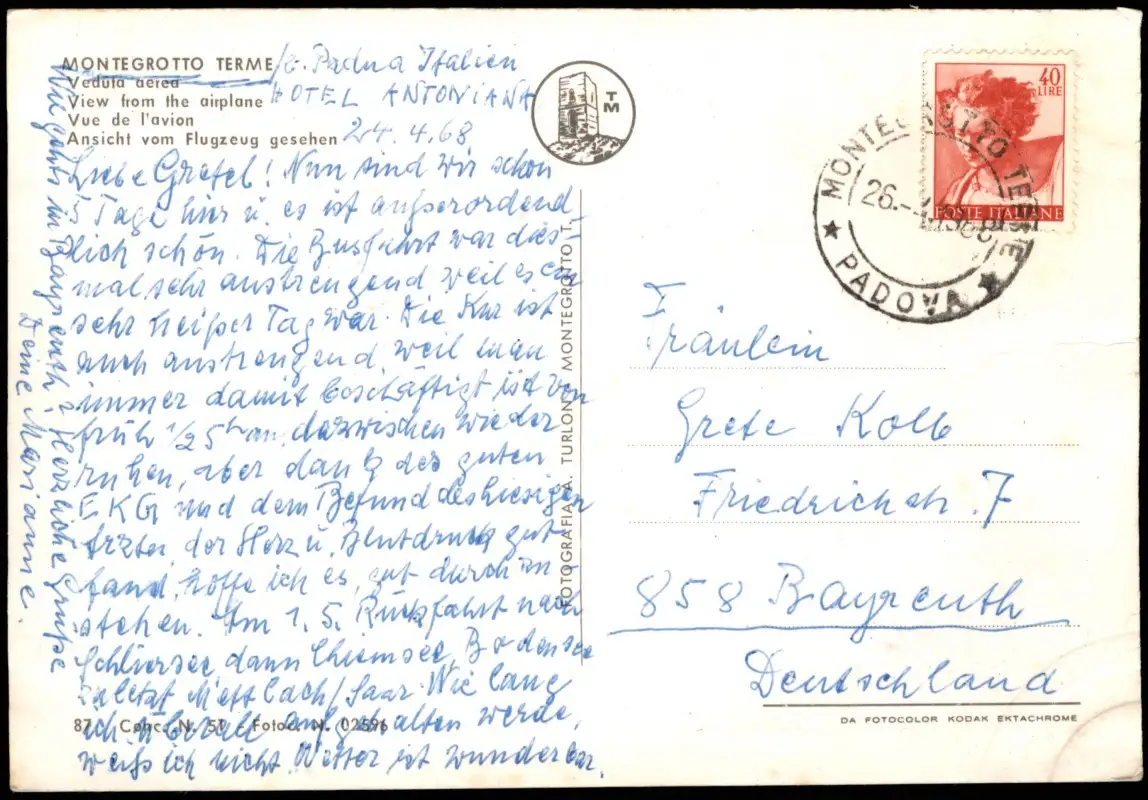 MONTEGROTTO TERME
Veduta aerea
View from the airplane
Vue de l'avion
Ansicht vom Flugzeug gesehen
b. Padua Italien
HOTEL ANTONIANA
24.4.68
Liebe Gretel! Nun sind wir schon
5 Tage hier u. es ist außerordend
lich schön. Die Zugfahrt war dies-
mal sehr anstrengend weil es ein
sehr heißer Tag war. Die Kur ist
auch anstrengend, weil man
immer damit beschäftigt ist von
früh 1/2 5h an, dazwischen wieder
ruhen, aber dank des guten
EKG und dem Befund des hiesigen
Arztes, der Herz u. Blutdruck gut
fand, hoffe ich es, gut durchzu-
stehen. Am 1. 5. Rückfahrt nach
Schliersee, dann Chiemsee, Bodensee
zuletzt Mettlach/Saar. Wie lang
ich überall aufgehalten werde,
weiß ich nicht. Wetter ist wunderbar.
Wie gehts in Bayreuth? Herzliche Grüße
Deine Marianne.
87 - Conc. N. 51 - Fotoc. N. 02596
T
M
FOTOGRAFIA A. TURLON MONTEGROTTO T.
40
LIRE
POSTE ITALIANE
MONTEGROTTO TERME
26.-4.1968
★ PADOVA ★
Fräulein
Grete Kolb
Friedrichstr. 7
858 Bayreuth
Deutschland
DA FOTOCOLOR KODAK EKTACHROME